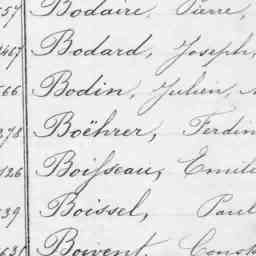 57 Bodaire, Pierre,
417 Bodard, Joseph,
566 Bodin, Julien,
278 Boëhrer, Ferdin
126 Boisseau, Emile
39 Boissel, Paul
631 Boivent, Const